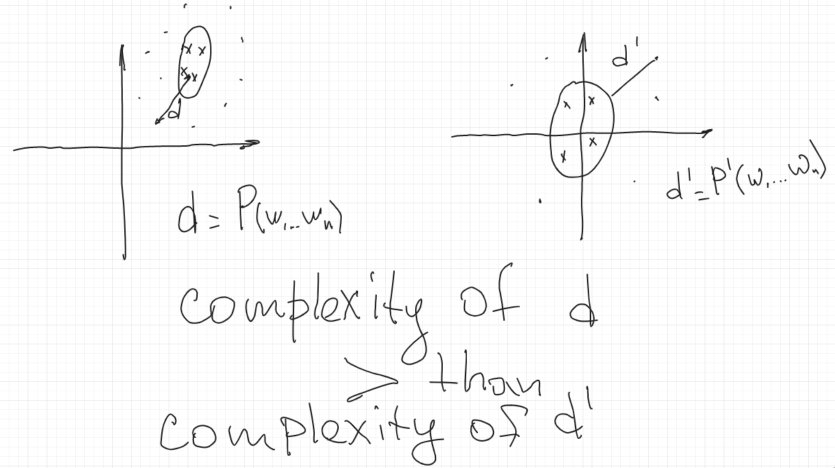 d
d'
d = P(w₁...wₙ)
d' = P'(w₁...wₙ)
complexity of d
> than
complexity of d'